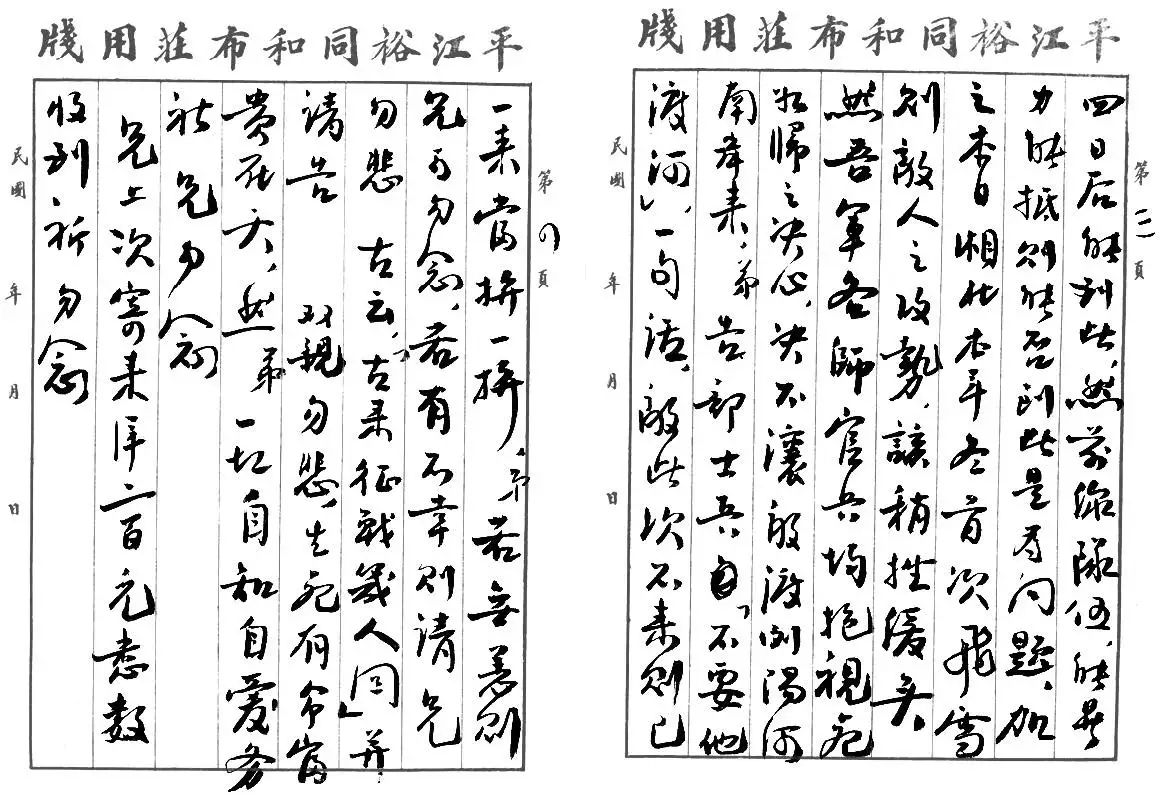 平江裕同和布莊用牋
第三頁
四日后能到此,然前線隊伍,能是
力能抵則能否到此是為問題,加
之本日湘北本年冬首次飛雪
則敵人之攻勢,諒稍挫緩矣,
然吾軍各師官兵均抱視死
如歸之決心,決不讓敵渡瀏陽河
南岸來,弟告部士兵「不要他
渡河」一句話,敵此次不來則已
民國 年 月 日
平江裕同和布莊用牋
第四頁
一來當拚一拚,弟若無恙則
兄可勿念,若有不幸則請兄
勿悲 古云,「古來征戰幾人回」并
請告 双親勿悲,生死有命富
貴在天,然弟一切自知自愛務
祈 兄勿念
兄上次寄來洋二百元悉數
收到祈 勿念
民國 年 月 日